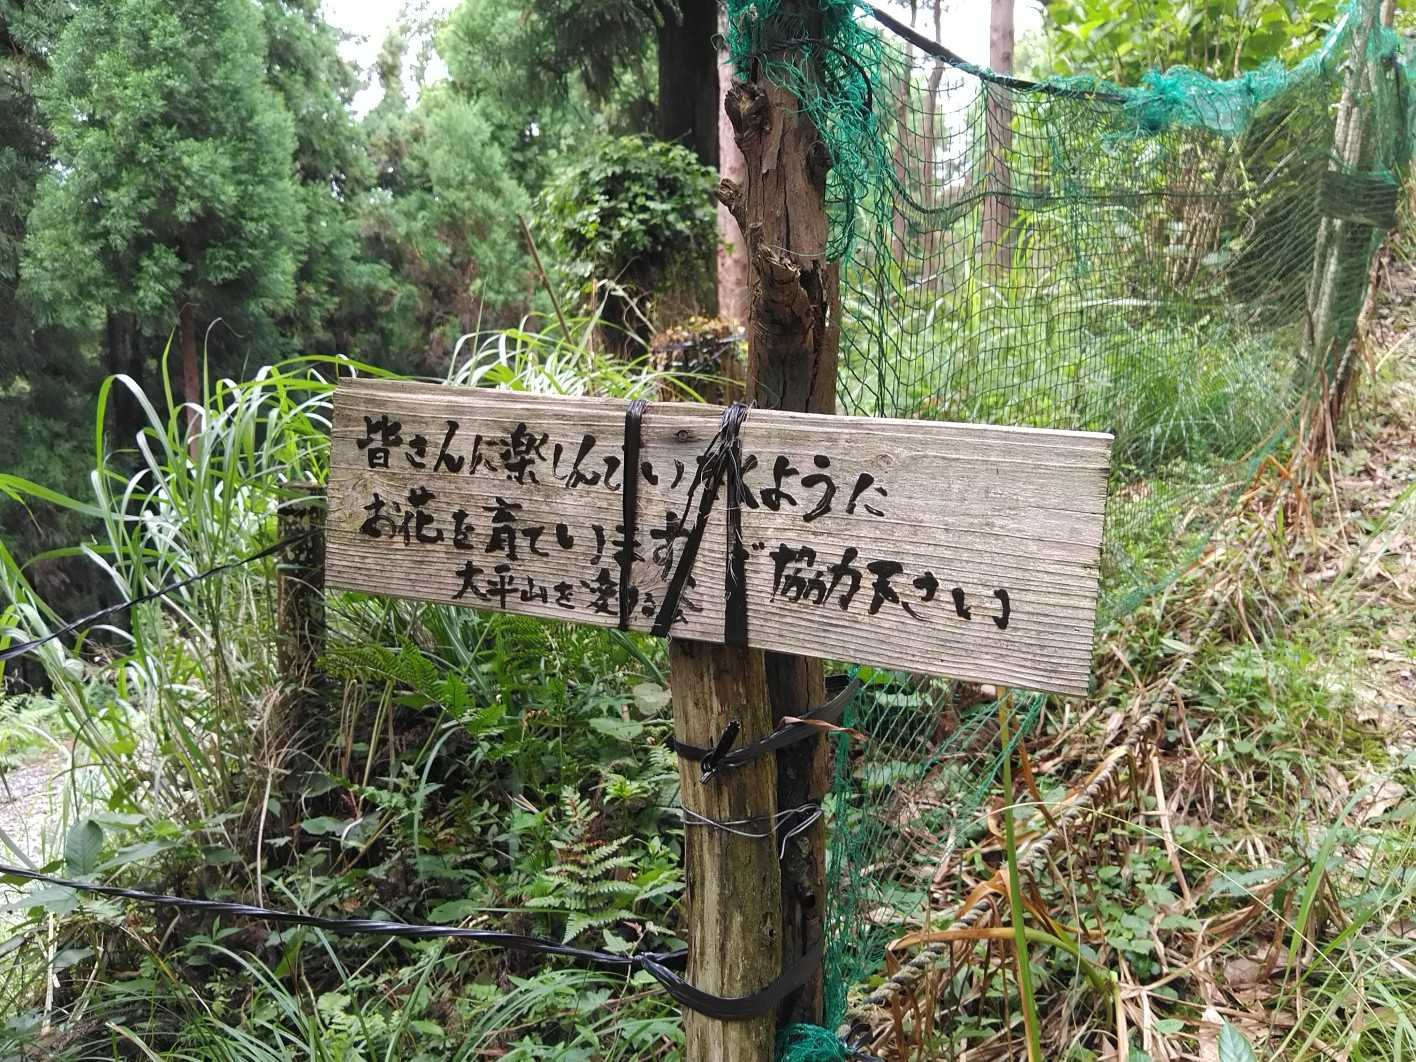 皆さんに楽しんでいただくように
お花を育ています ご協力下さい
大平山を愛する会